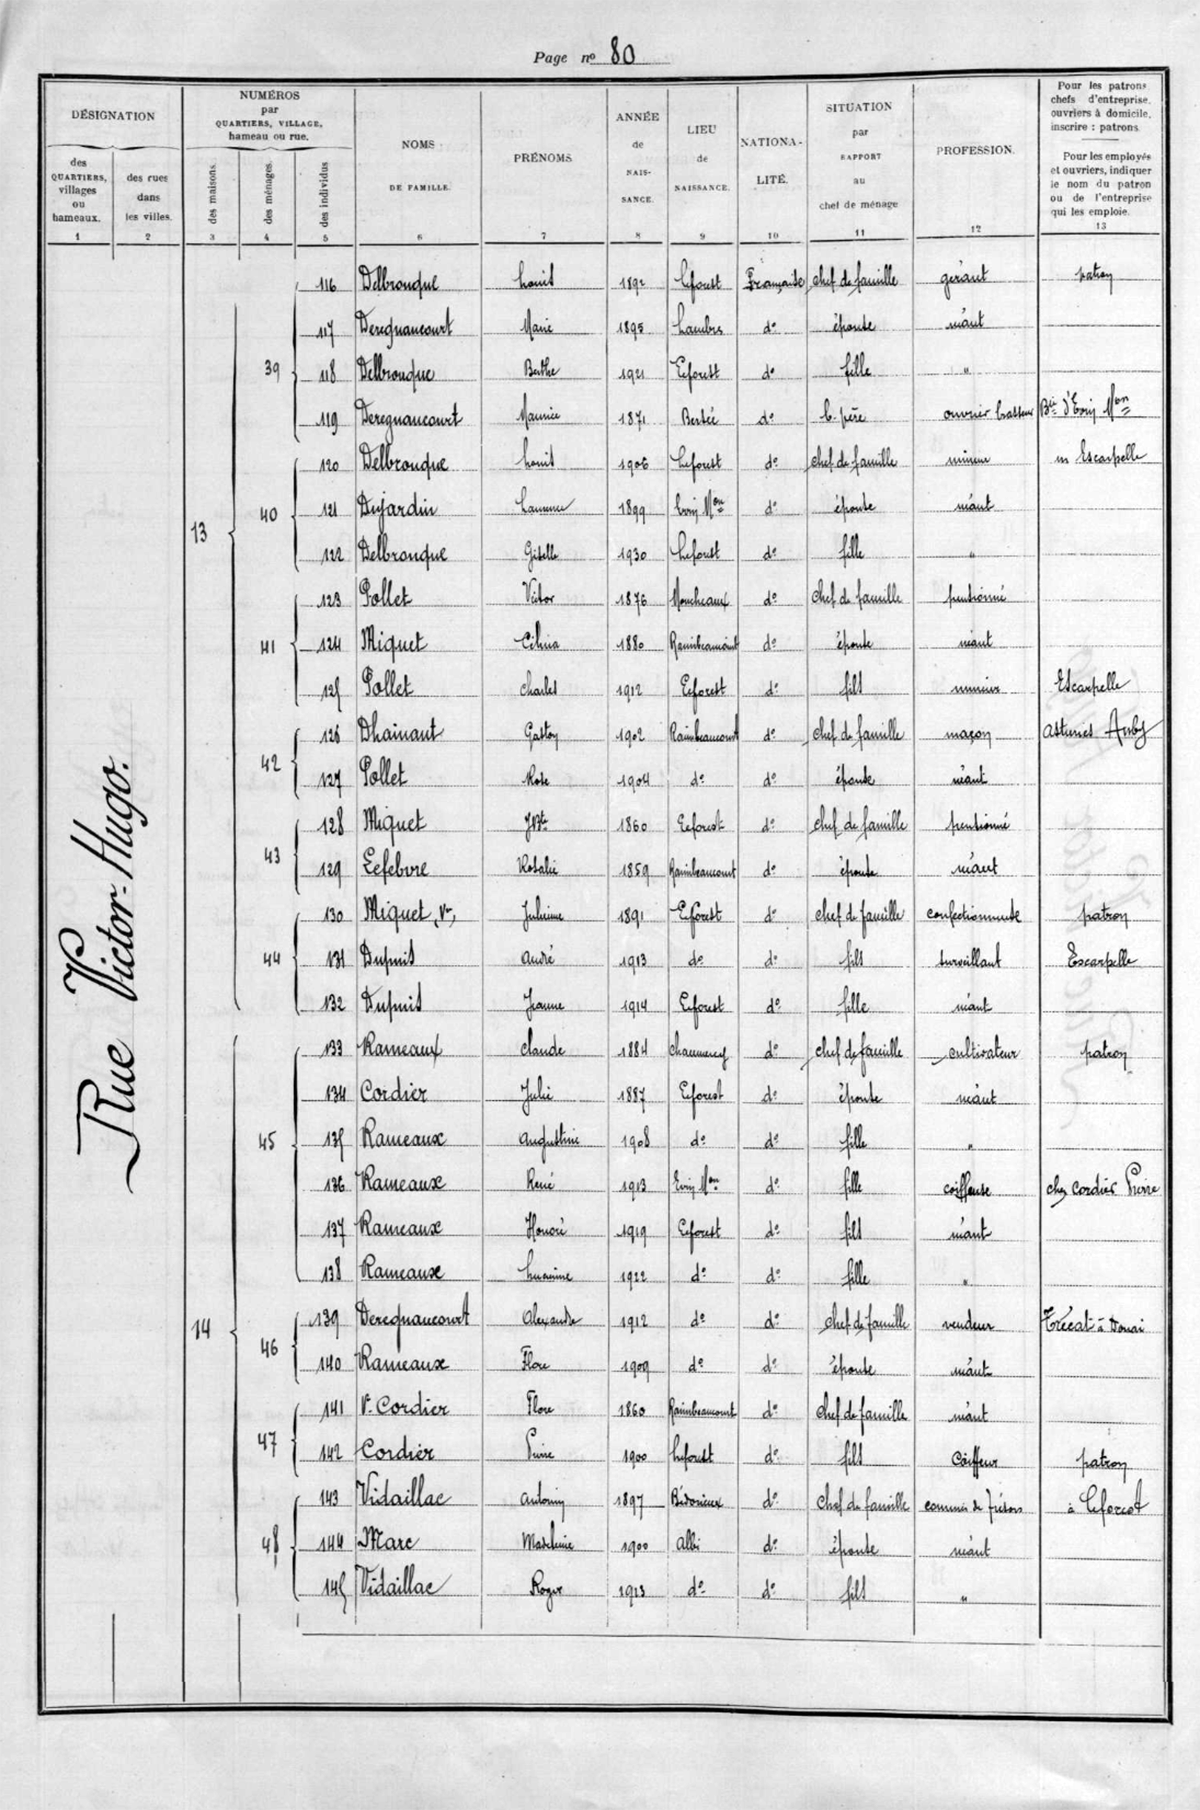 Page nº 80
DÉSIGNATION
des QUARTIERS, villages ou hameaux.
des rues dans les villes.
NUMÉROS par QUARTIERS, VILLAGE, hameau ou rue.
des maisons.
des ménages.
des individus
NOMS DE FAMILLE.
PRÉNOMS.
ANNÉE de NAISSANCE.
LIEU de NAISSANCE.
NATIONALITÉ.
SITUATION par RAPPORT au chef de ménage
PROFESSION.
Pour les patrons, chefs d'entreprise, ouvriers à domicile, inscrire : patrons.
Pour les employés et ouvriers, indiquer le nom du patron ou de l'entreprise qui les emploie.
1 2 3 4 5 6 7 8 9 10 11 12 13
Rue Victor-Hugo.
13
39
116 Delbrouque Louis 1892 Leforest Française chef de famille gérant patron
117 Deregnaucourt Marie 1895 Lambres dº épouse néant
118 Delbrouque Berthe 1921 Leforest dº fille "
119 Deregnaucourt Maurice 1871 Bersée dº b. père ouvrier brasseur Bie d'Evin Mon
40
120 Delbrouque Louis 1906 Leforest dº chef de famille mineur m Escarpelle
121 Dujardin Laurence 1899 Evin Mon dº épouse néant
122 Delbrouque Gisèle 1930 Leforest dº fille "
41
123 Pollet Victor 1876 Moncheaux dº chef de famille pensionné
124 Miquet Célina 1880 Raimbeaucourt dº épouse néant
125 Pollet Charles 1912 Leforest dº fils mineur Escarpelle
42
126 Dhainaut Gaston 1902 Raimbeaucourt dº chef de famille maçon Asturies Auby
127 Pollet Rose 1904 dº dº épouse néant
43
128 Miquet JBte 1860 Leforest dº chef de famille pensionné
129 Lefebvre Rosalie 1859 Raimbeaucourt dº épouse néant
44
130 Miquet (Ve) Julienne 1891 Leforest dº chef de famille confectionneuse patron
131 Dupuis André 1913 dº dº fils surveillant Escarpelle
132 Dupuis Jeanne 1914 Leforest dº fille néant
14
45
133 Rameaux Claude 1884 dº chef de famille cultivateur patron
134 Cordier Julie 1887 Leforest dº épouse néant
135 Rameaux Augustine 1908 dº dº fille "
136 Rameaux René 1913 Evin Mon dº fille coiffeuse chez Cordier Pierre
137 Rameaux Honoré 1919 Leforest dº fils néant
138 Rameaux Lucienne 1922 dº dº fille "
46
139 Deregnaucourt Alexandre 1912 dº dº chef de famille vendeur Trécat à Douai
140 Rameaux Flore 1909 dº dº épouse néant
47
141 Ve Cordier Flore 1860 Raimbeaucourt dº chef de famille néant
142 Cordier Pierre 1900 Leforest dº fils Coiffeur patron
48
143 Vidaillac Antonin 1897 dº chef de famille commis de Trésor à Leforest
144 Marc Madeleine 1900 Albi dº épouse néant
145 Vidaillac Roger 1923 dº dº fils "